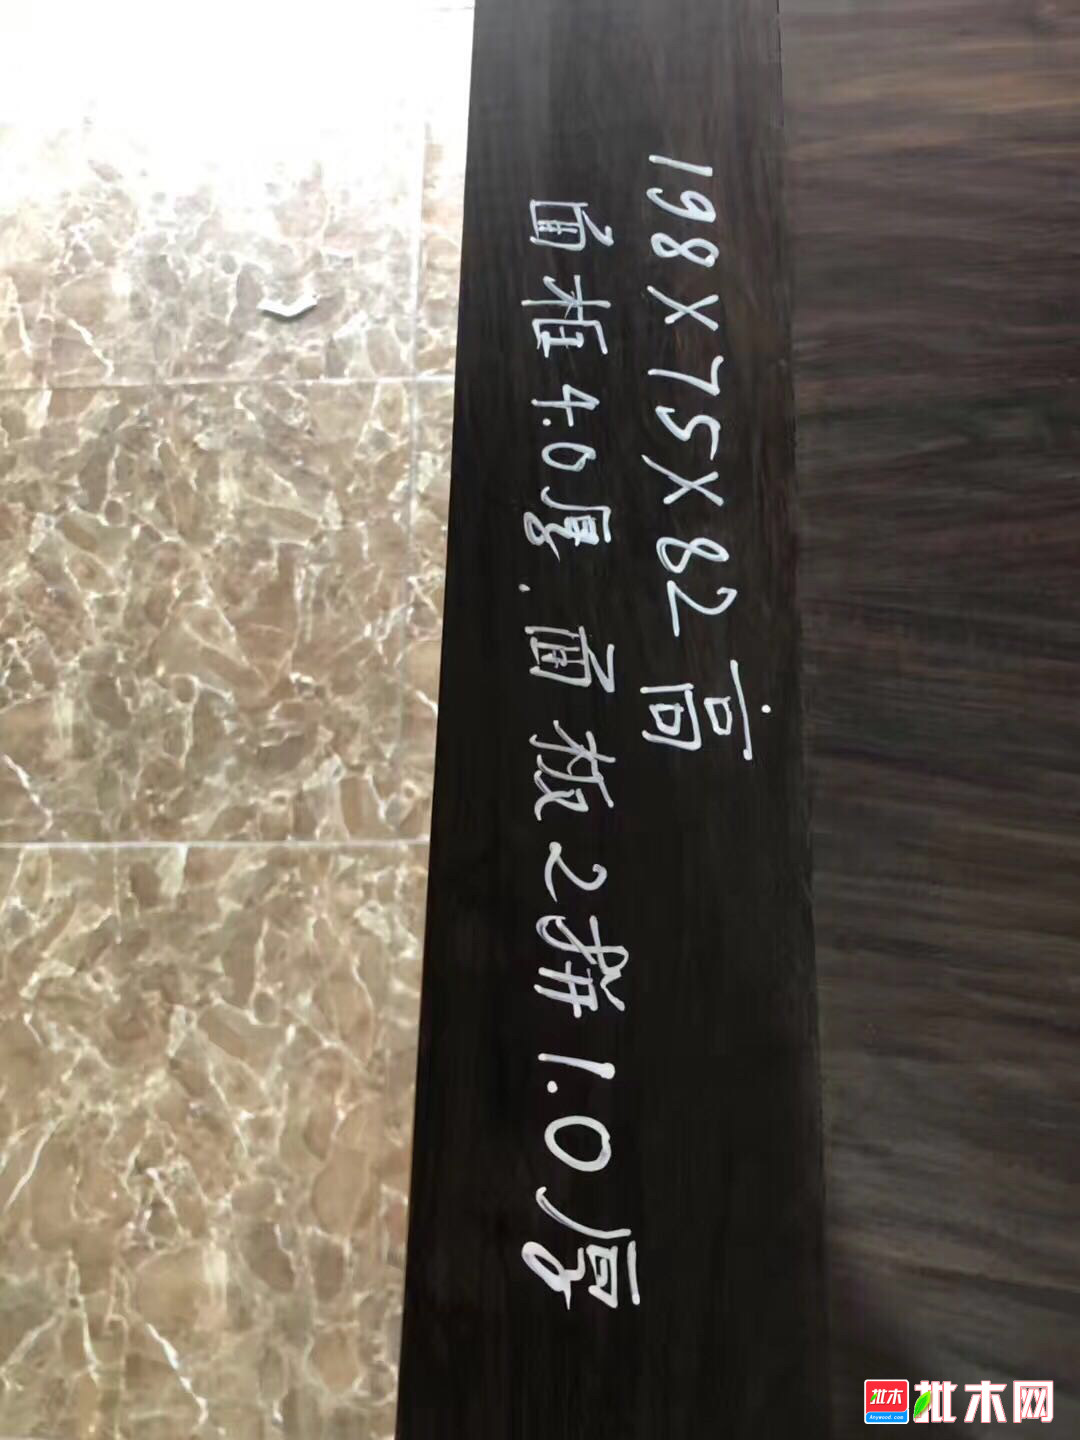 198X75X82高
面框4.0厚.面板2拼1.0厚
批木
Anywood.com
批木网